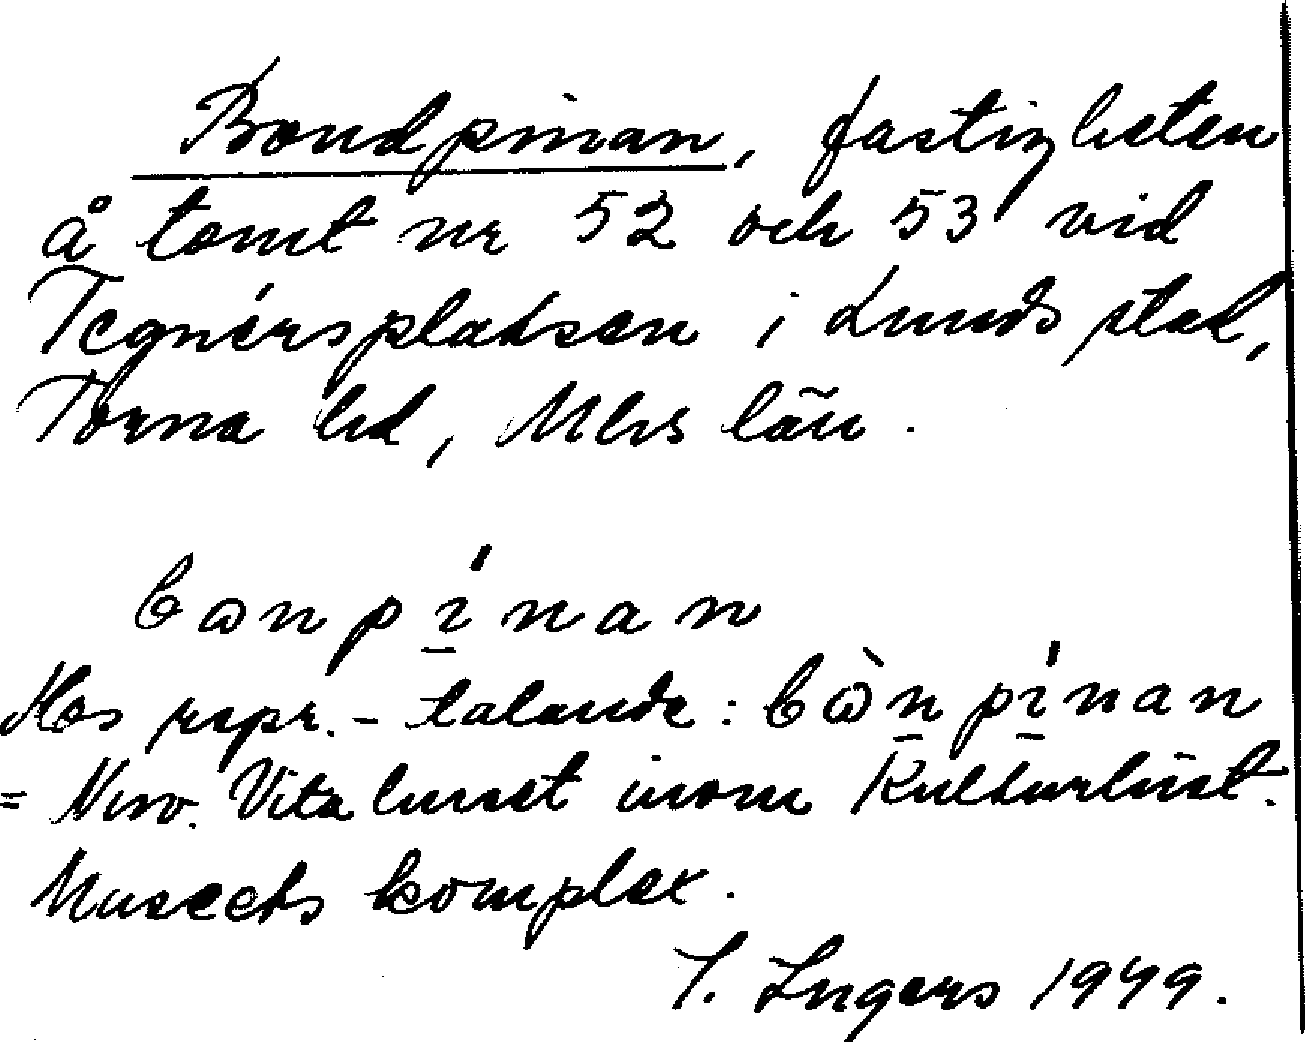 Bondpinan, fastigheten
å tomt nr 52 och 53 vid
Tegnérsplatsen i Lunds stad,
Torna hd, Mlhs län.
bɷnpi̱´nan
Hos repr.-talande: bɷ̀n̠pi̱´nan
= Nuv. Vita huset inom Kulturhist.
Museets komplex.
I. Ingers 1949.